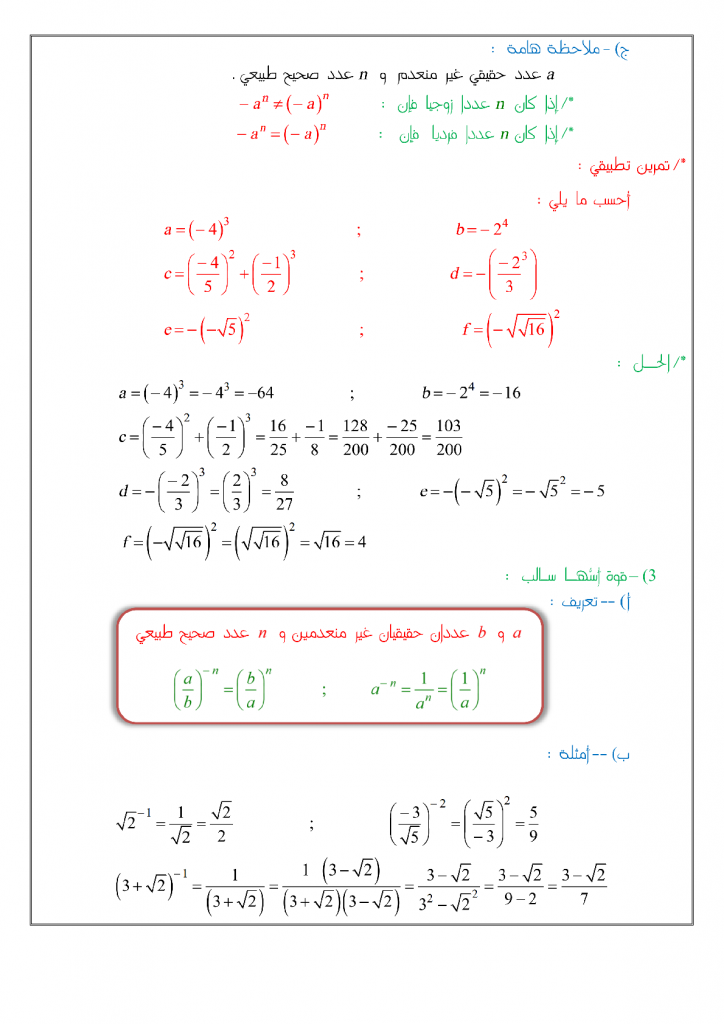 ج) - ملاحظة هامة :
a عدد حقيقي غير منعدم و n عدد صحيح طبيعي .
*/ إذا كان n عددا زوجيا فإن : - aⁿ ≠ (- a)ⁿ
*/ إذا كان n عددا فرديا فإن : - aⁿ = (- a)ⁿ
*/ تمرين تطبيقي :
أحسب ما يلي :
a = (- 4)³ ; b = - 2⁴
c = (- 4/5)² + (-1/2)³ ; d = - (- 2³/3)
e = - (- √5)² ; f = (- √√16)²
*/ الحــل :
a = (- 4)³ = - 4³ = -64 ; b = - 2⁴ = -16
c = (- 4/5)² + (-1/2)³ = 16/25 + -1/8 = 128/200 + - 25/200 = 103/200
d = - (- 2/3)³ = (2/3)³ = 8/27 ; e = - (- √5)² = - √5² = - 5
f = (-√√16)² = (√√16)² = √16 = 4
3) – قوة أسها سالب :
أ) -- تعريف :
a و b عددان حقيقيان غير منعدمين و n عدد صحيح طبيعي
(a/b)⁻ⁿ = (b/a)ⁿ ; a⁻ⁿ = 1/aⁿ = (1/a)ⁿ
ب) -- أمثلة :
√2⁻¹ = 1/√2 = √2/2 ; (- 3/√5)⁻² = (√5/- 3)² = 5/9
(3 + √2)⁻¹ = 1/(3 + √2) = 1 (3 - √2)/(3 + √2)(3 - √2) = 3 - √2/3² - √2² = 3 - √2/9 - 2 = 3 - √2/7